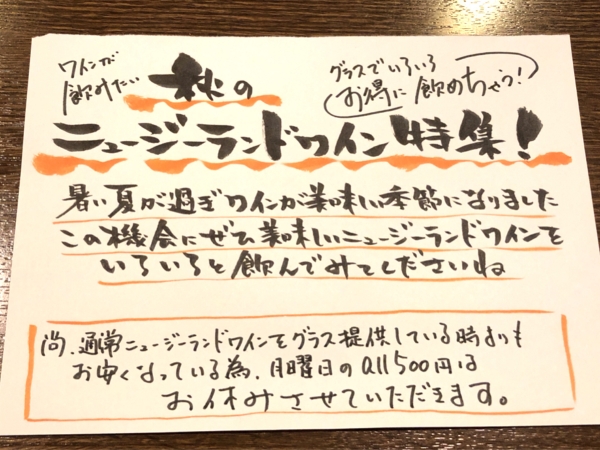 ワインが
飲みたい
秋の
グラスでいろいろ
お得に飲めちゃう!
ニュージーランドワイン特集!
暑い夏が過ぎワインが美味しい季節になりました
この機会にぜひ美味しいニュージーランドワインを
いろいろと飲んでみてくださいね
尚、通常ニュージーランドワインをグラス提供している時よりも
お安くなっている為、月曜日のall500円は
お休みさせていただきます。